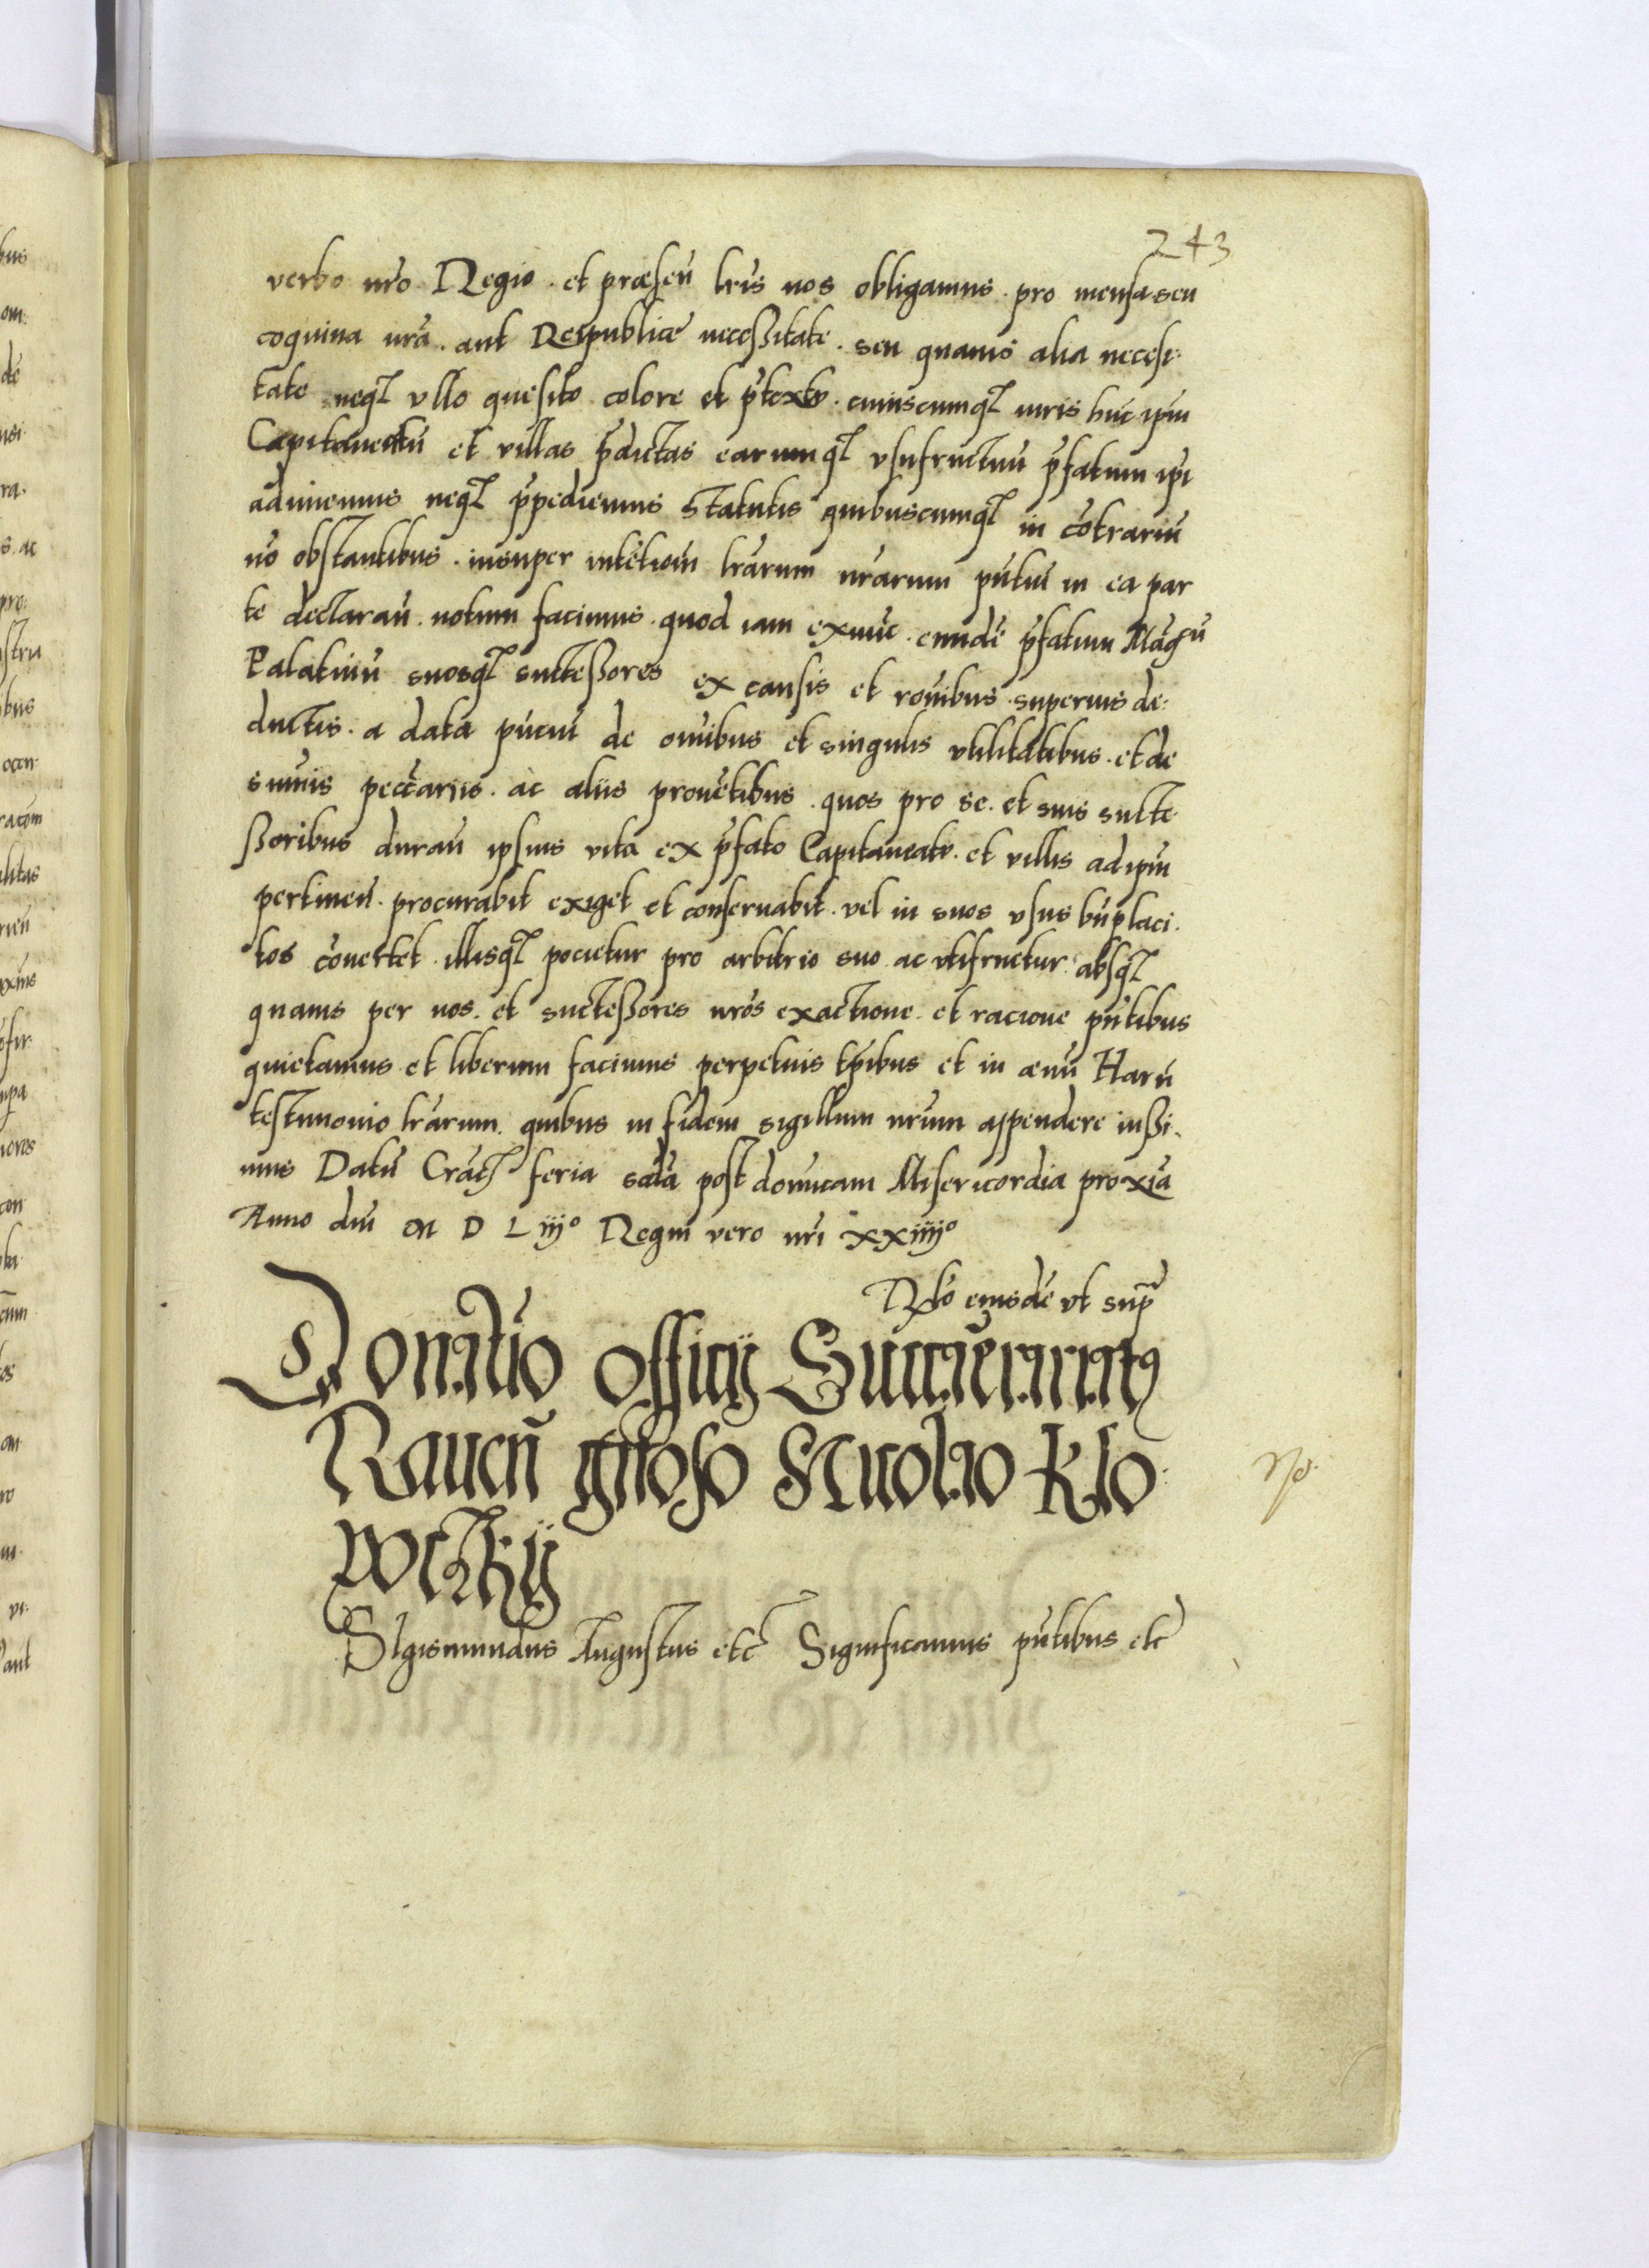 243
verbo nr̃o Regio. et præsen̄ lr̃is nos obligamus. pro mensa seu
coquina nr̃a. aut Reipublicę necessitate. seu quavis alia necessi-
tate neqꝫ vllo quesito colore et p̄textu. cuiuscumqꝫ iuris hūc ip̄m
Capitaneatū et villas p̄dictas earumqꝫ vsufructum p̄fatum ip̄i
adimemus neqꝫ p̄pediemus Statutis quibuscumqꝫ in cōtrariū
nō obstantibus. insuper intētiōm lr̃arum nr̃arum pn̄tiū in ea par
te declaran̄. notum facimus. quod iam exnūc. eundē p̄fatum Mag͡cū
Palatinū suosqꝫ successores ex causis et rōnibus superius de-
ductis. a data pn̄ciū de om̄ibus et singulis vtilitatibus. et de
sum̄is pecc̄ariis. ac aliis provētibus. quos pro se. et suis succe-
ssoribus duran̄ ipsius vita ex p̄fato Capitaneatu. et villis ad ip̄m
pertinen̄. procurabit exiget et conservabit. vel in suos vsus bn̄placi-
tos cōvertet. illisqꝫ pocietur pro arbitrio suo ac vtifruetur absqꝫ
quavis per nos. et successores nr̃os exactione. et racione pn̄tibus
quietamus et liberum facimus perpetuis tp̄ibus et in ævū Harū
testimonio lr̃arum. quibus in fidem sigillum nr̃um appendere iussi-
mus Datū Crac̄ꝫ feria scd̄a post domi̅cam Misericordia proxīa
Anno dn̄i M D L iiijº Regni vero nr̃i xxiiijº
Rl̄o eiusdē vt sup̄
Donatio officij Succamerariatꝯ
Raven̄ gn̄oso Nicolao Klo-
poczky
Sigismundus Augustus etc̄ Significamus pn̄tibus etc̄